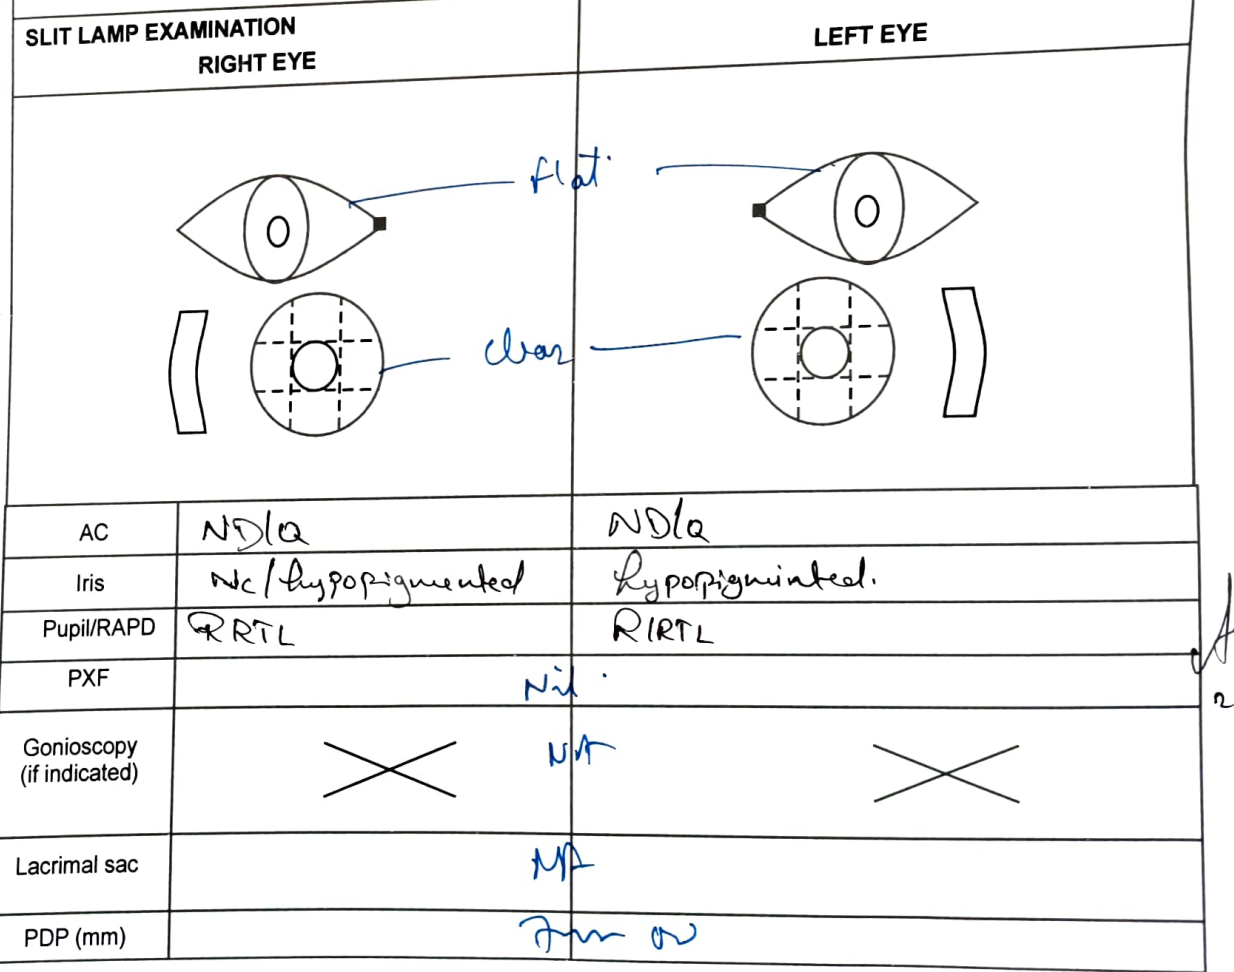 SLIT LAMP EXAMINATION
RIGHT EYE LEFT EYE
flat
clear
AC ND/Q ND/Q
Iris NC/hypopigmented hypopigminted.
Pupil/RAPD RRTL RIRTL
PXF Nil
Gonioscopy NA
(if indicated)
Lacrimal sac NA
PDP (mm) 7mm OU
2